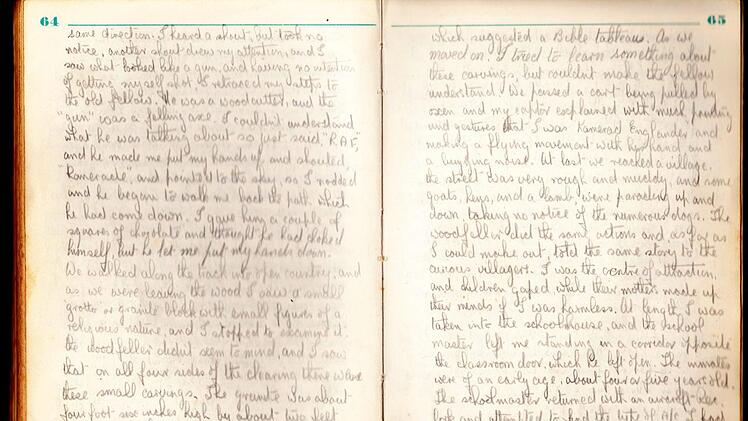 64
same direction. I heard a shout, but took no
notice, another shout drew my attention, and I
saw what looked like a gun, and having no intention
of getting myself shot, I retraced my steps to
the old fellow. He was a woodcutter, and the
"gun" was a felling axe. I couldn't understand
what he was talking about so just said "R.A.F.",
and he made me put my hands up and shouted,
"Kamerade", and pointed to the sky, so I nodded
and he began to walk me back the path which
he had come down. I gave him a couple of
squares of chocolate and thought he had choked
himself, but he let me put my hands down.
We walked along the track into open country, and
as we were leaving the wood I saw a small
'grotto' or granite block with small figures of a
religious nature, and I stopped to examine it.
the woodfeller didn't seem to mind, and I saw
that on all four sides of the clearing there were
these small carvings. The granite was about
four foot six inches high by about two feet
65
which suggested a Bible tableau. As we
moved on. I tried to learn something about
these carvings, but couldn't make the fellow
understand. We passed a cart being pulled by
oxen and my captor explained with much pointing
and gestures that I was Kamerad Englander and
making a flying movement with his hand and
a buzzing noise. At last we reached a village.
the street was very rough and muddy, and some
goats, hens, and a lamb, were parading up and
down, taking no notice of the numerous dogs. The
woodfeller did the same actions and as far as
I could make out, told the same story to the
curious villagers. I was the centre of attraction,
and children gaped, while their mothers made up
their minds if I was harmless. At length I was
taken into the schoolhouse, and the school
master left me standing in a corridor opposite
the classroom door, which he left open. The inmates
were of an early age, about four or five years old.
The schoolmaster returned with an aircraft rec.
book and attempted to find the type of A/c I had